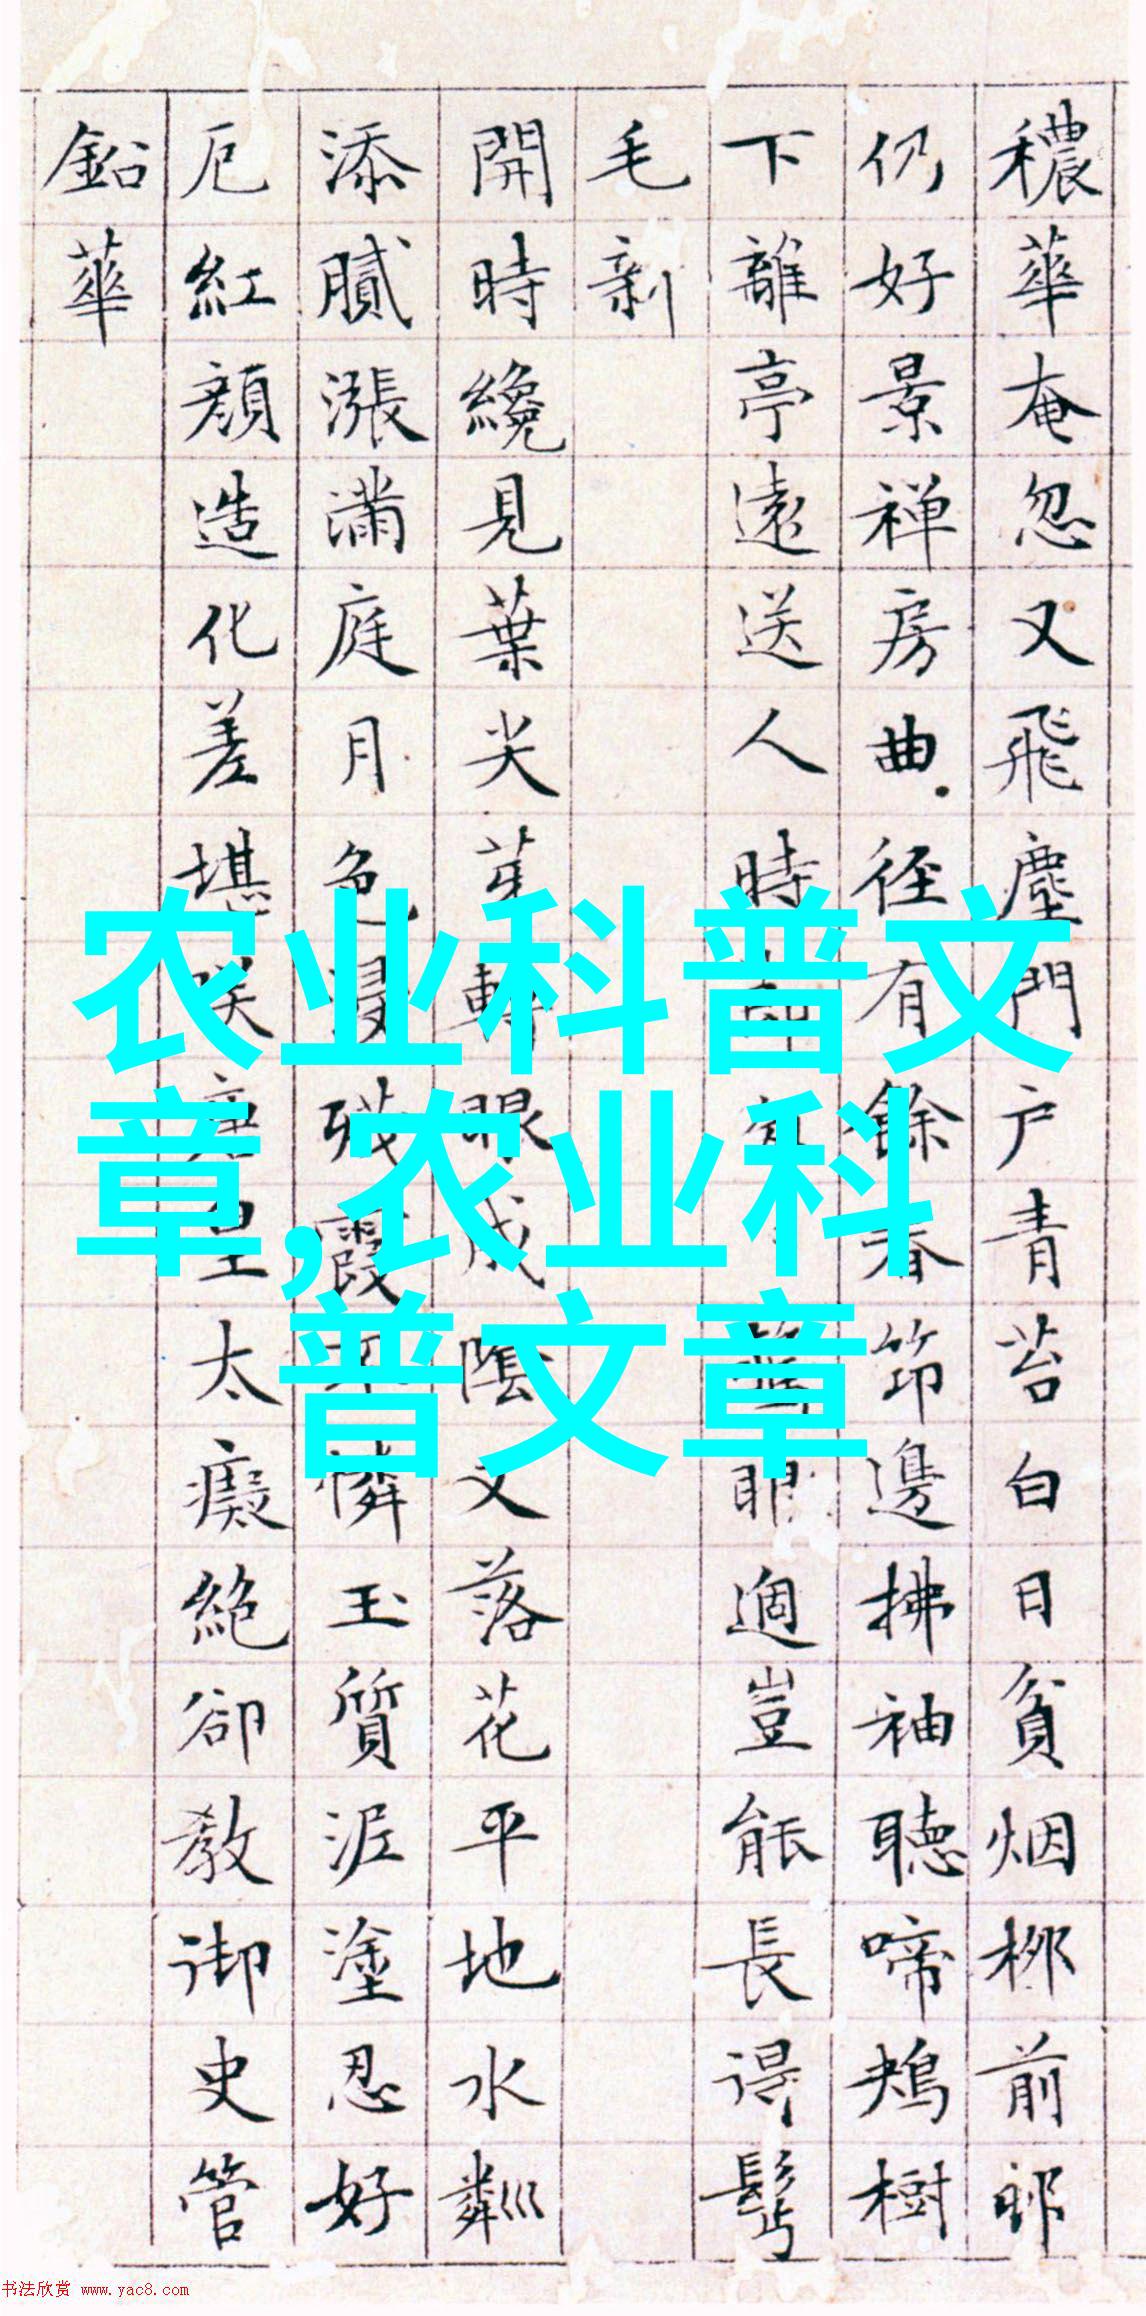 穠華奄忽又飛塵門户青苔白日貧烟柳前
仍好景禅房曲径有餘春笻邊拂袖聽啼鴂樹
下離亭遠送人時適豈能長得髩
毛新
開時纔見葉尖芽轉眼成陰又落花平地水粼巛
添膩漲滿庭月色浸残霞憐玉質泥塗忍好
卮紅顔造化差堪太癡絶卻教御史管
鉛華
农业科普文
章,农业科
普文章
书法欣赏 www.yac8.com